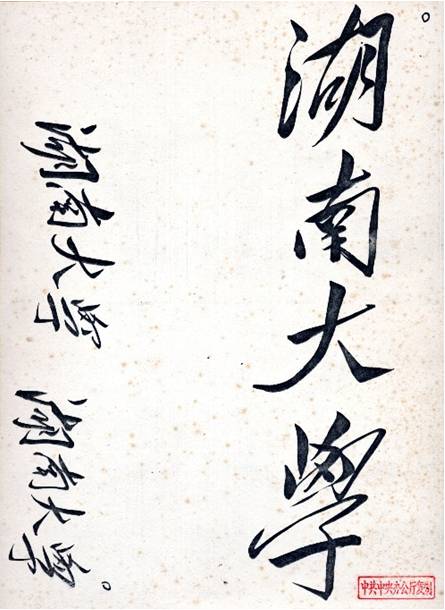 湖南大學
湖南大學
湖南大學。
中共中央办公厅复制